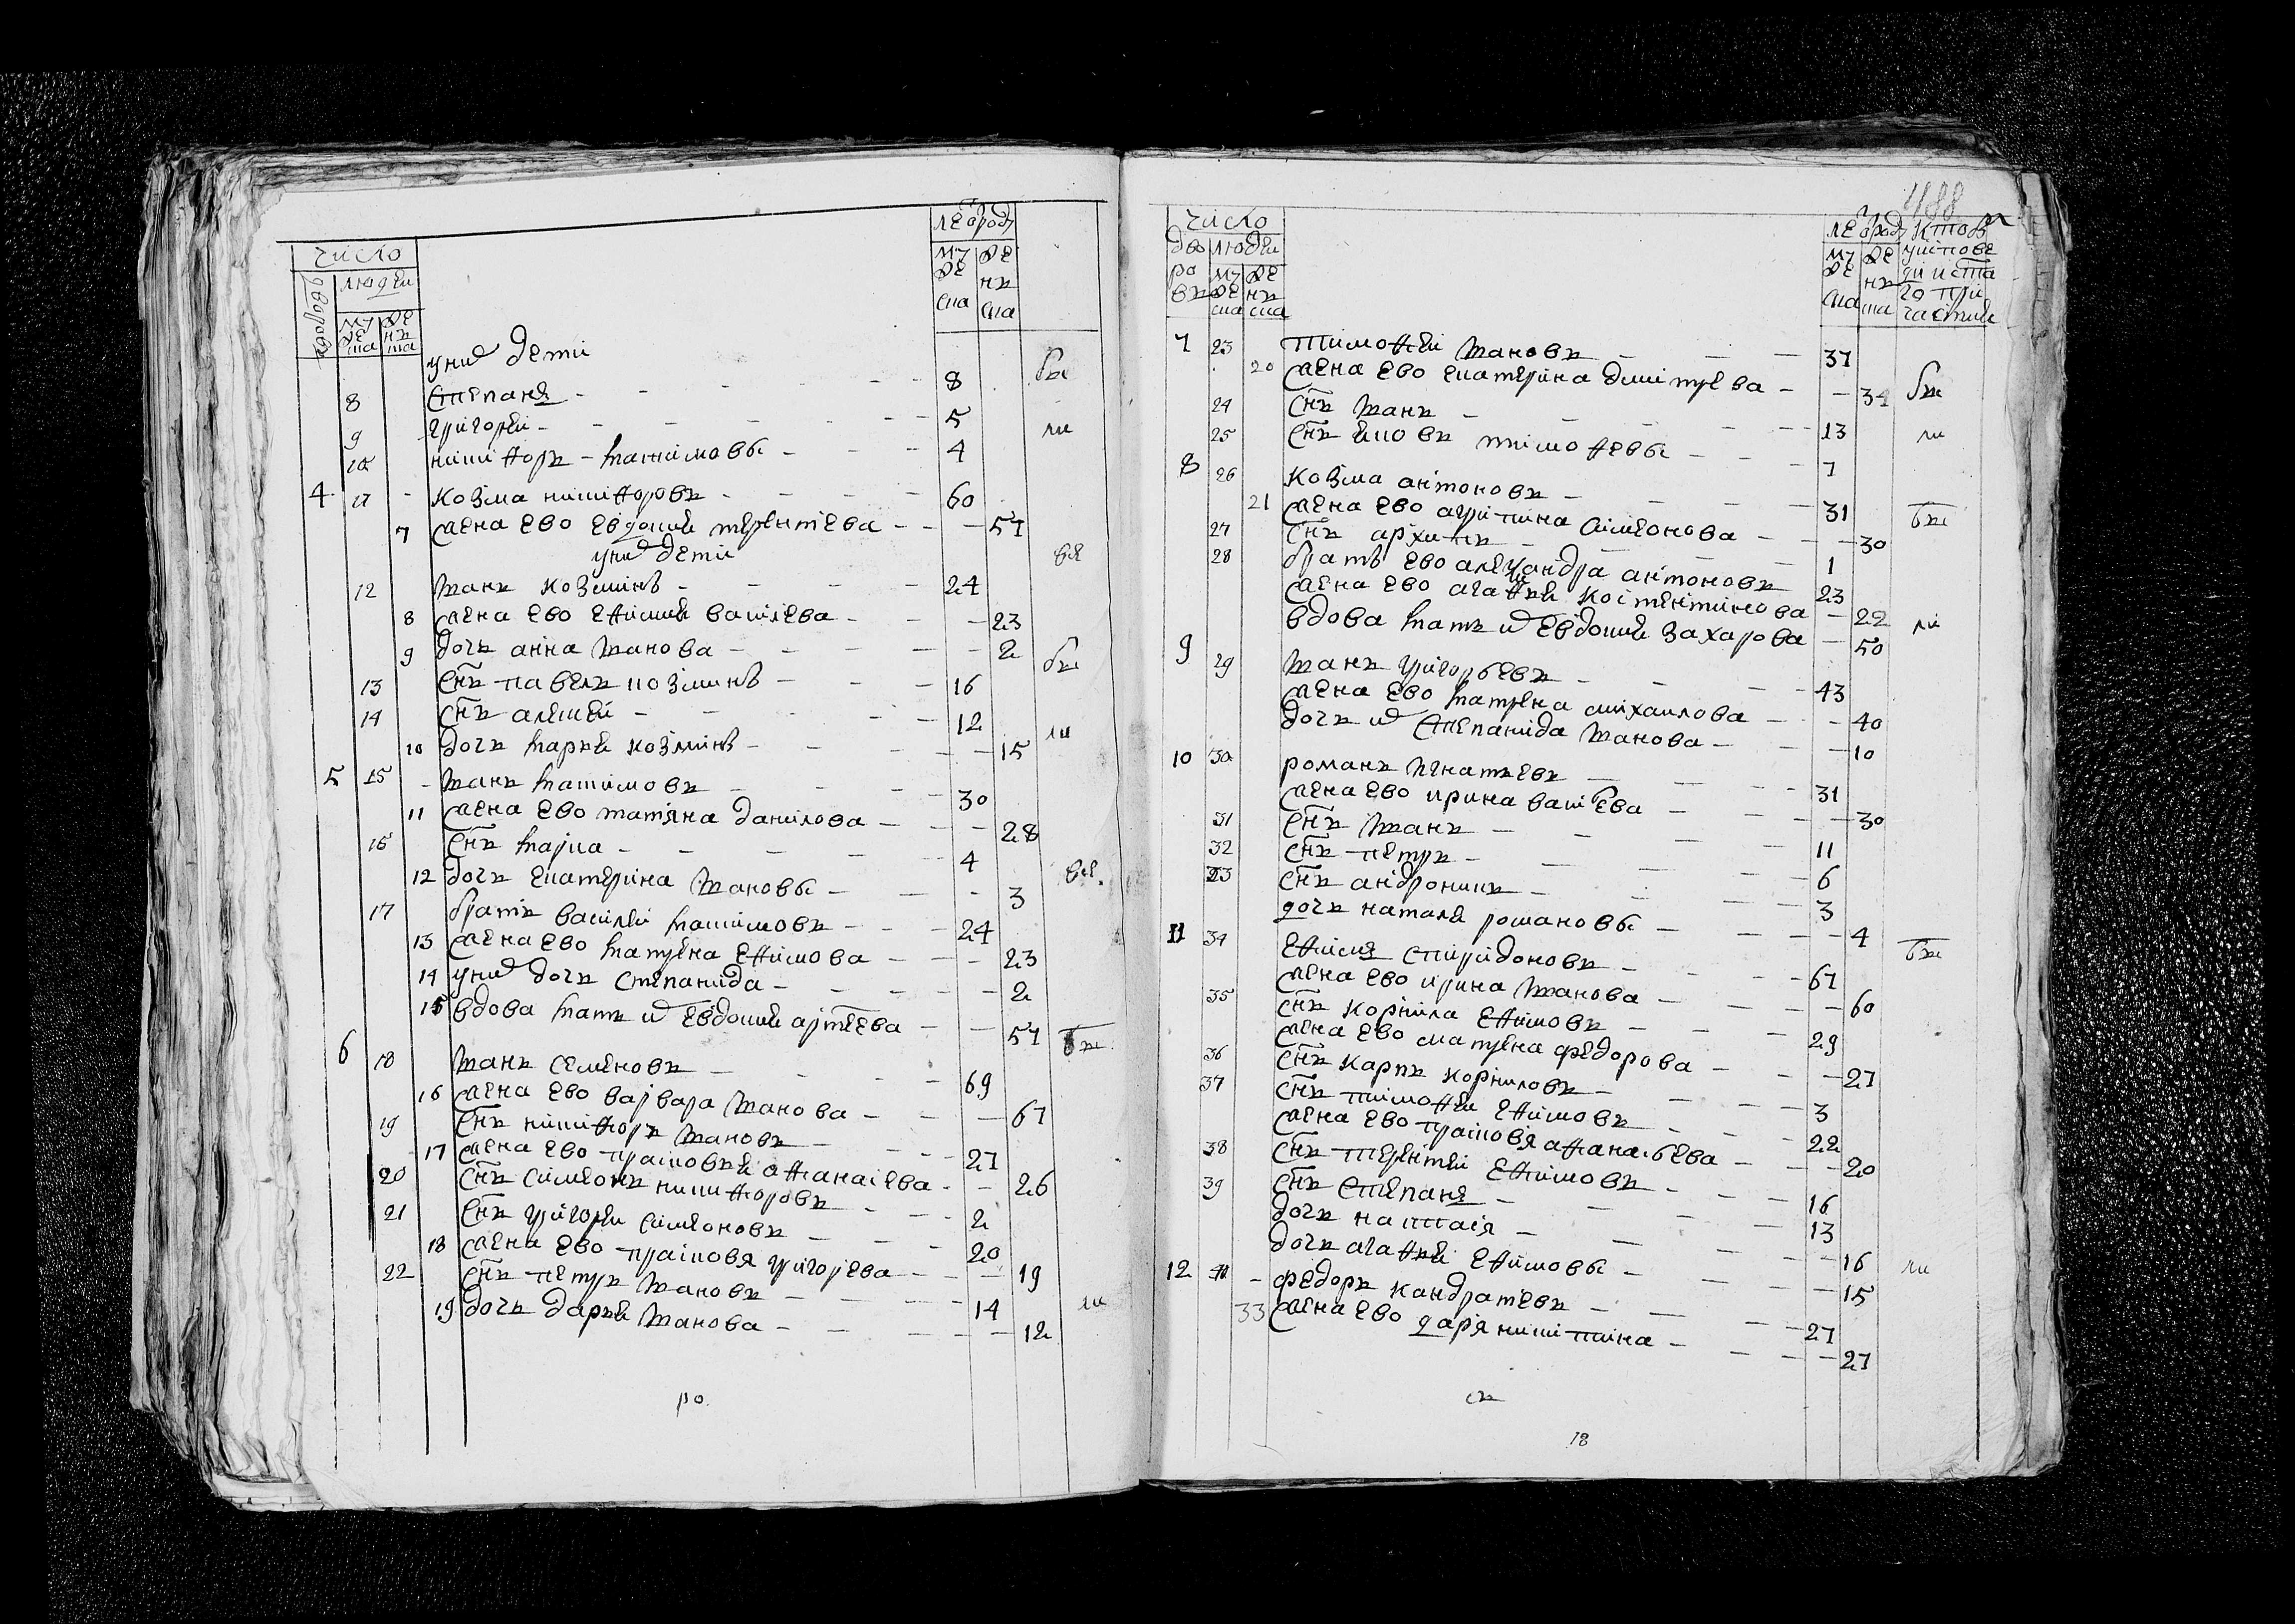 число
дворовъ
людей
муже ска
женъ ска
лѣ от род
муже ска
жен ска
у них дети
8 Степанъ - 8
9 Григорей - 5
10 Никифоръ - Максимовы - 4
4 11 Козма Никифоровъ - 60
7 жена ево Евдокия Терентиева - 57
у них дети
12 Иванъ Козминъ - 24
8 жена ево Ефимия Василева - 23
9 дочь Анна Иванова - 2
13 снъ Павелъ Козминъ - 16
14 снъ Алексей - 12
10 дочь Марья Козмина - 15
5 15 Иванъ Максимовъ - 30
11 жена ево Татияна Данилова - 28
16 снъ Марка - 4
12 дочь Екатерина Ивановы - 3
17 братъ Василей Максимовъ - 24
13 жена ево Матрена Ефимова - 23
14 у них дочь Степанида - 2
15 вдова мать их Евдокия - 57
6 18 Иванъ Семеновъ - 69
16 жена ево Варвара Иванова - 67
19 снъ Никифоръ Ивановъ - 27
17 жена ево Прасковья Афанасиева - 26
20 снъ Симеонъ Никифоровъ - 2
21 снъ Григорей Симеоновъ - 20
18 жена ево Прасковя Григорьева - 19
22 снъ Петръ Ивановъ - 14
19 дочь Дарья Иванова - 12
ро
1188
число
дво ро въ
людей
муже ска
женъ ска
лѣ от род
муже ска
женъ ска
7 23 Тимофей Ивановъ - 37
20 жена ево Екатерина Димитрева - 34
24 снъ Иванъ - 13
25 снъ Яковъ Тимофевы - 7
8 26 Козма Антоновъ - 31
21 жена ево Агрипина Симеонова - 30
27 снъ Архипъ - 1
28 братъ ево Александра Антоновъ - 23
жена ево Агафья Костентинова - 22
вдова мать их Евдокия Захарова - 50
9 29 Иванъ Григорьевъ - 43
жена ево Матрена Михаилова - 40
дочь их Степанида Иванова - 10
10 30 Романъ Игнатьевъ - 31
жена ево Ирина Васильева - 30
31 снъ Иванъ - 11
32 снъ Петръ - 6
33 снъ Андроникъ - 3
дочь Наталя Романовы - 4
11 34 Ефимъ Спиридоновъ - 67
жена ево Ирина Иванова - 60
35 снъ Корнила Ефимовъ - 29
жена ево Матрена Федорова - 27
36 снъ Карпъ Корниловъ - 3
37 снъ Тимофей Ефимовъ - 22
жена ево Прасковья Афанасьева - 20
38 снъ Терентей Ефимовъ - 16
39 снъ Степанъ - 13
дочь Настасия - 16
дочь Агафья Ефимовы - 15
12 41 - Федоръ Кандратевъ - 27
33 жена ево Дарья Никитина - 27
съ
18